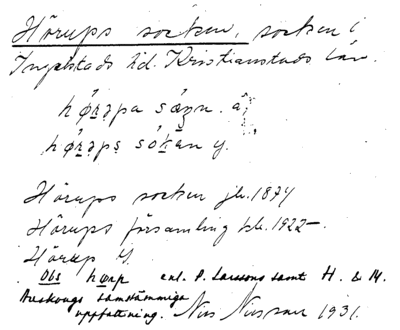 Hörups socken, socken i
Ingelstads hd. Kristianstads län.
hø̀rəpa sǻzn. ä
hø̀rəps sókən y.
Hörups socken jb. 1874
Hörups församling kb. 1922–
Hörup y.
Obs hørp enl. P. Larssons samt H. & M.
Areskougs samstämmiga
uppfattning. Nils Nilsson 1931.